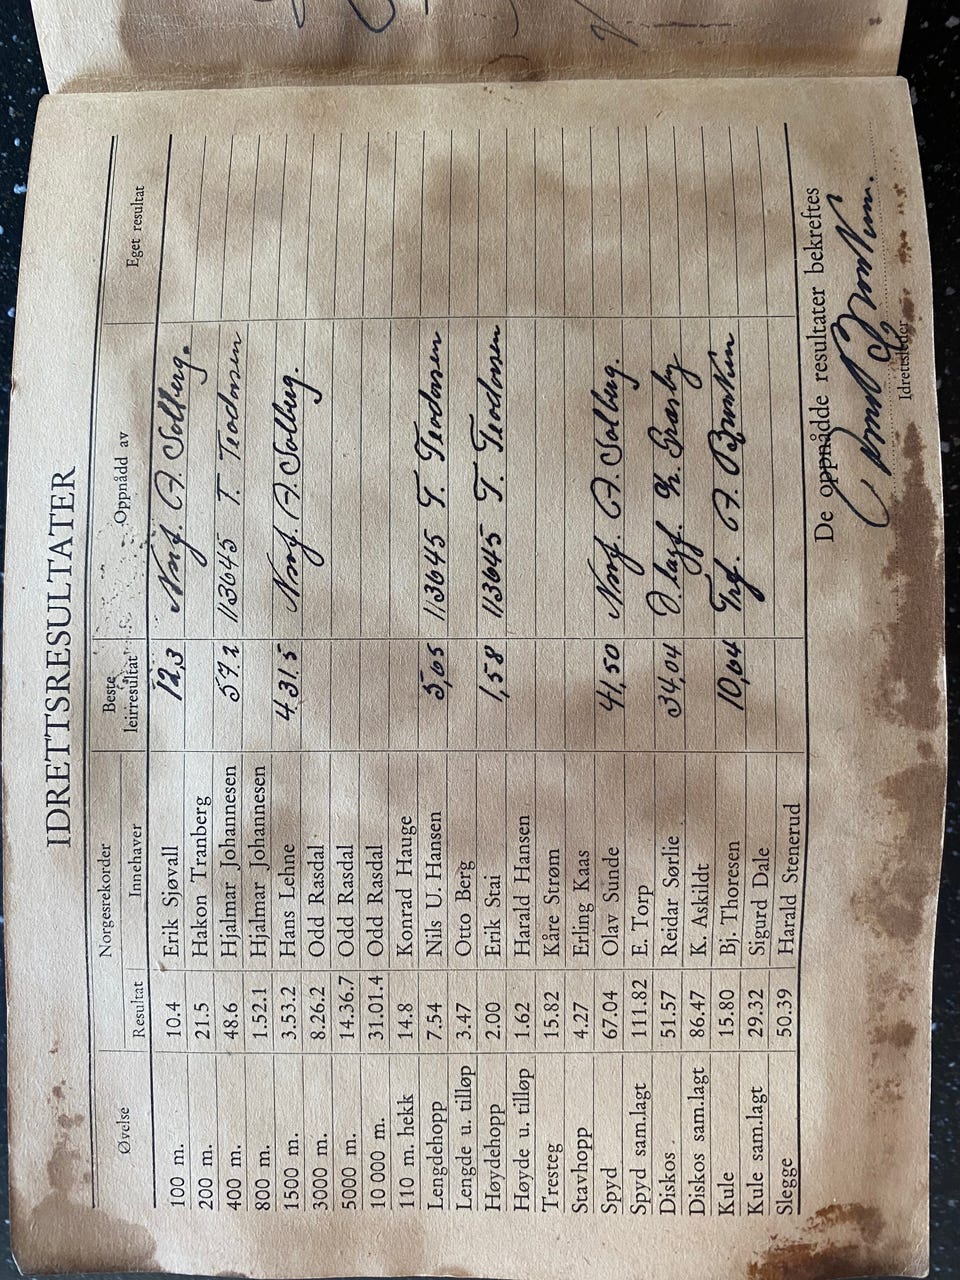 IDRETTSRESULTATER
Øvelse Norgesrekorder Beste leirresultat Oppnådd av Eget resultat
Resultat Innehaver
100 m. 10.4 Erik Sjøvall 12,3 A. Solberg.
200 m. 21.5 Hakon Tranberg
400 m. 48.6 Hjalmar Johannesen 57.2 113645 T. Teodorsen
800 m. 1.52.1 Hjalmar Johannesen
1500 m. 3.53.2 Hans Lehne 4.31.5 A. Solberg.
3000 m. 8.26.2 Odd Rasdal
5000 m. 14.36.7 Odd Rasdal
10 000 m. 31.01.4 Odd Rasdal
110 m. hekk 14.8 Konrad Hauge
Lengdehopp 7.54 Nils U. Hansen 5,65 113645 T. Teodorsen
Lengde u. tilløp 3.47 Otto Berg
Høydehopp 2.00 Erik Stai 1,58 113645 T. Teodorsen
Høyde u. tilløp 1.62 Harald Hansen
Tresteg 15.82 Kåre Strøm
Stavhopp 4.27 Erling Kaas
Spyd 67.04 Olav Sunde 41,50 A. Solberg.
Spyd sam.lagt 111.82 E. Torp
Diskos 51.57 Reidar Sørlie 34,04
Diskos sam.lagt 86.47 K. Askildt
Kule 15.80 Bj. Thoresen 10,64
Kule sam.lagt 29.32 Sigurd Dale
Slegge 50.39 Harald Stenerud
De oppnådde resultater bekreftes
Idrettsleder